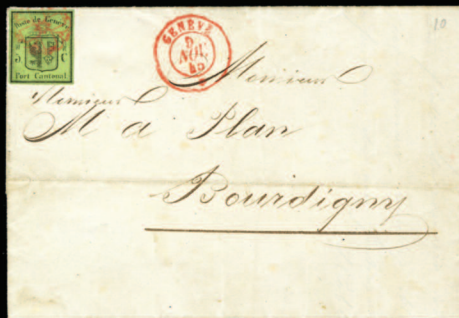 Poste de Genève
5 C
Port Cantonal
GENÈVE
9
NOV.
45
10
Monsieur
Monsieur
M a Plan
Bourdigny